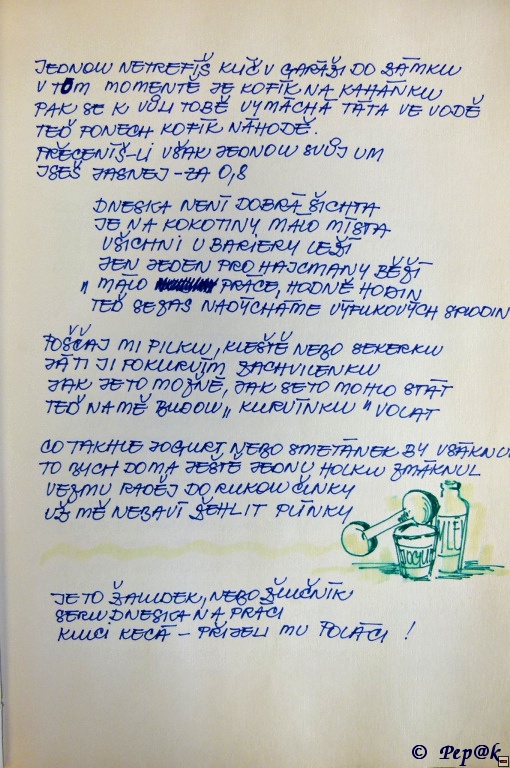 JEDNOU NETREFÍŠ KLÍČ V GARÁŽI DO ZÁMKU
V TOM MOMENTĚ JE KOFÍK NA KAHÁNKU
PAK SE K VŮLI TOBĚ VYMÁCHÁ TÁTA VE VODĚ
TEĎ PONECH KOFÍK NÁHODĚ.
PŘECENÍŠ-LI VŠAK JEDNOU SVŮJ UM
JSEŠ JASNEJ - ZA 0,8
DNESKA NENÍ DOBRÁ ŠICHTA
JE NA KOKOTINY MÁLO MÍSTA
VŠICHNI U BARIERY LEŽÍ
JEN JEDEN PRO HAJCMANY BĚŽÍ
„ MÁLO PRÁCE, HODNĚ HODIN
TEĎ SEZAS NADÝCHÁME VÝFUKOVÝCH SPLODIN
POŠČAJ MI PILKU, KLEŠTĚ NEBO SEKERKU
JÁ TI JI POKURVÍM ZACHVILENKU
JAK JE TO MOŽNÉ, JAK SE TO MOHLO STÁT
TEĎ NA MĚ BUDOU „ KURVÍNKU " VOLAT
CO TAKHLE JOGURT NEBO SMETÁNEK BY VŠÁKNUL
TO BYCH DOMA JEŠTĚ JEDNU HOLKU ZMÁKNUL
VEZMU RADĚJ DO RUKOU ČINKY
UŽ MĚ NEBAVÍ ŽEHLIT PLÍNKY
JOGUR MLÉ
JE TO ŽALUDEK, NEBO ŽLUČNÍK
SERU DNESKA NA PRÁCI
KLUCI KECÁ - PŘIJELI MU POLÁCI !
© Pep@k